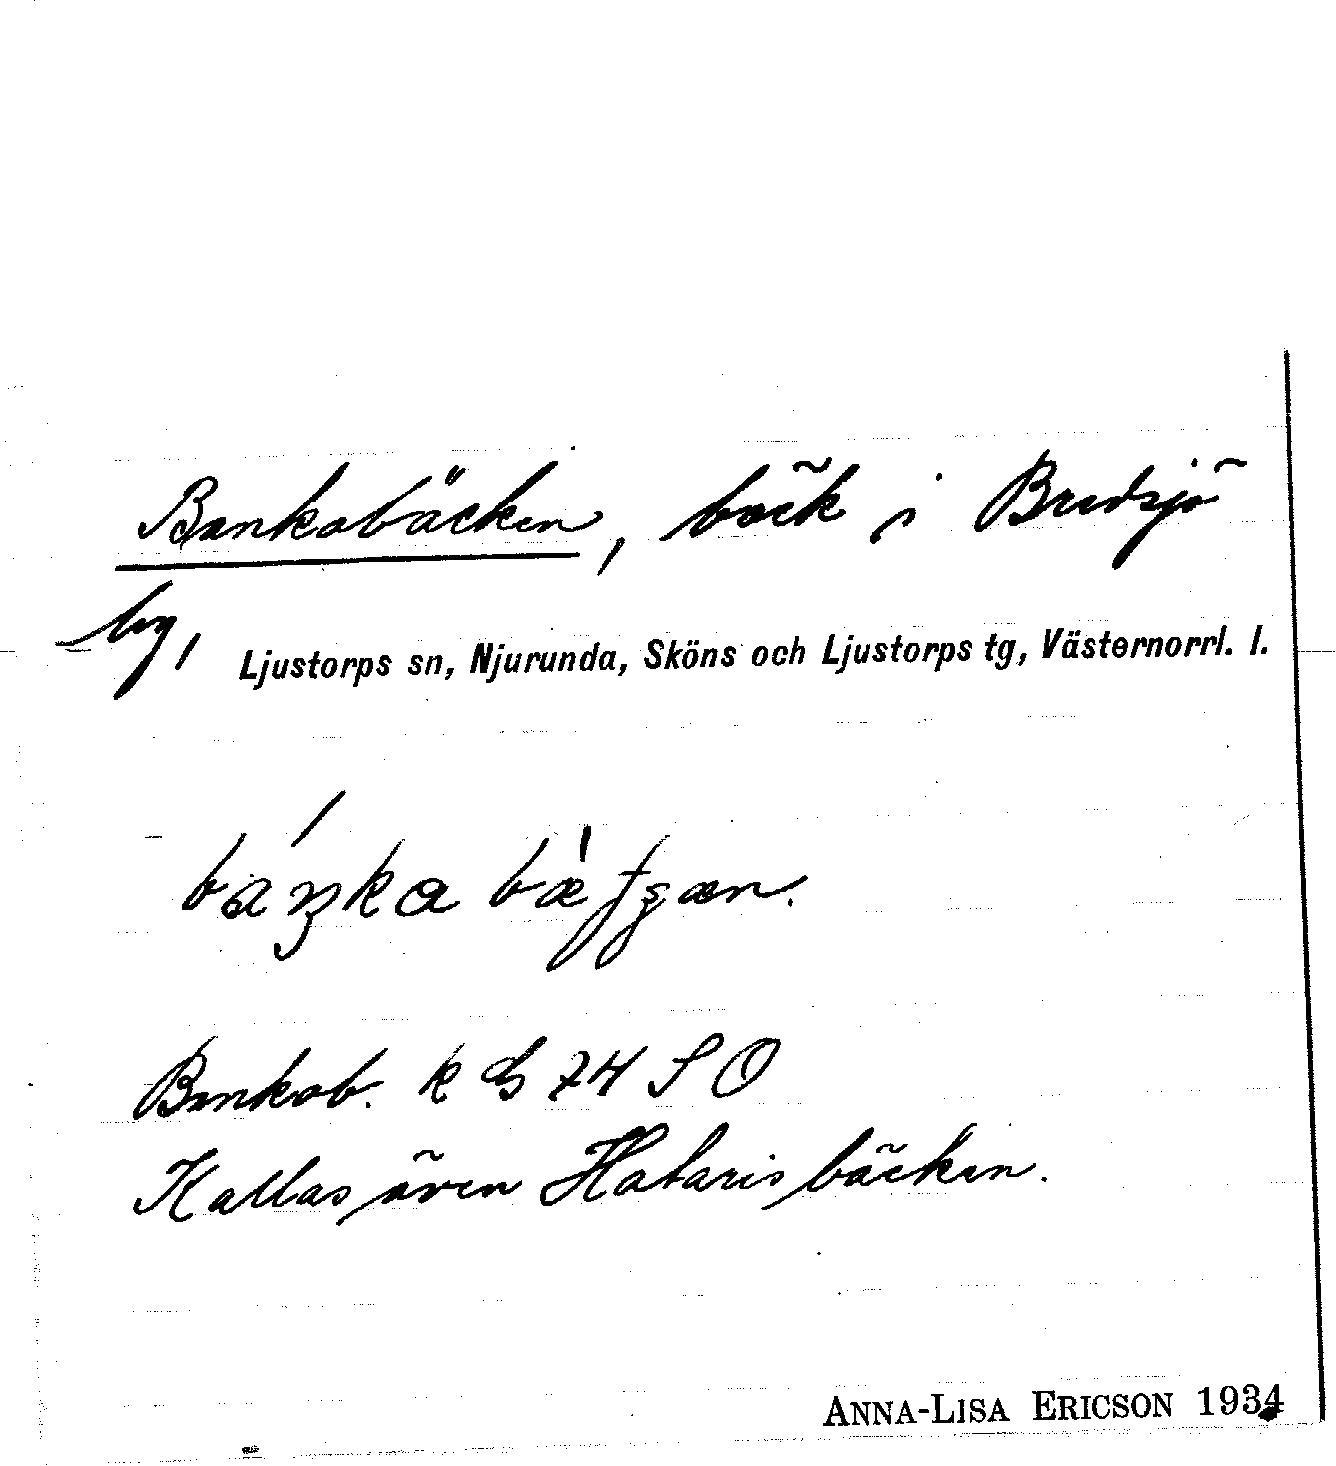 Bankabäcken, bäck i Bredsjö
by,
Ljustorps sn, Njurunda, Sköns och Ljustorps tg, Västernorrl. l.
Bankab. k G 74 S O
Kallas även Hatarisbäcken.
ANNA-LISA ERICSON 1934